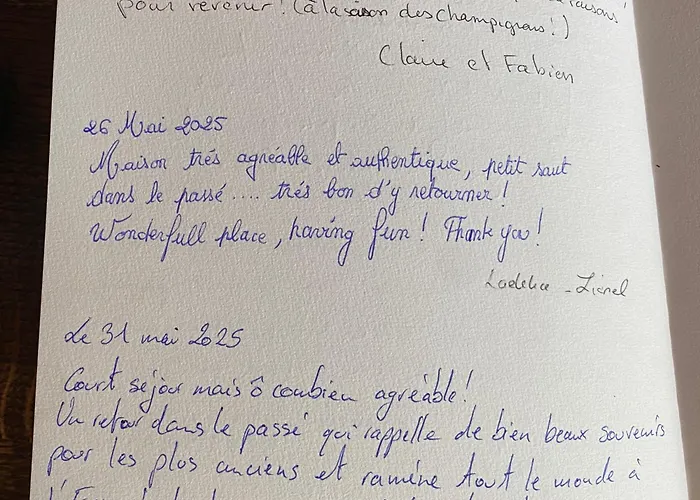 raisons
pour revenir! (à la saison des champignons!)
Claire et Fabien
26 Mai 2025
Maison trés agréable et authentique, petit saut
dans le passé.... trés bon d'y retourner!
Wonderfull place, having fun! Thank you!
Lionel
Le 31 mai 2025
Court séjour mais ô combien agréable!
Un retour dans le passé qui rappelle de bien beaux souvenirs
pour les plus anciens et ramène tout le monde à